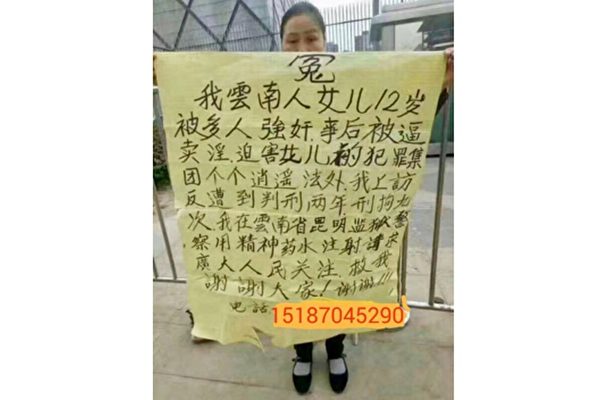 冤
我雲南人女儿12岁
被多人強奸.事后被逼
卖淫.迫害女儿的犯罪集
团个个逍遥法外.我上訪
反遭到判刑两年.刑拘九
次.我在雲南省昆明监狱警
察用精神药水注射請求
廣大人民关注.救我
謝謝大家!謝謝!!!
电話
15187045290